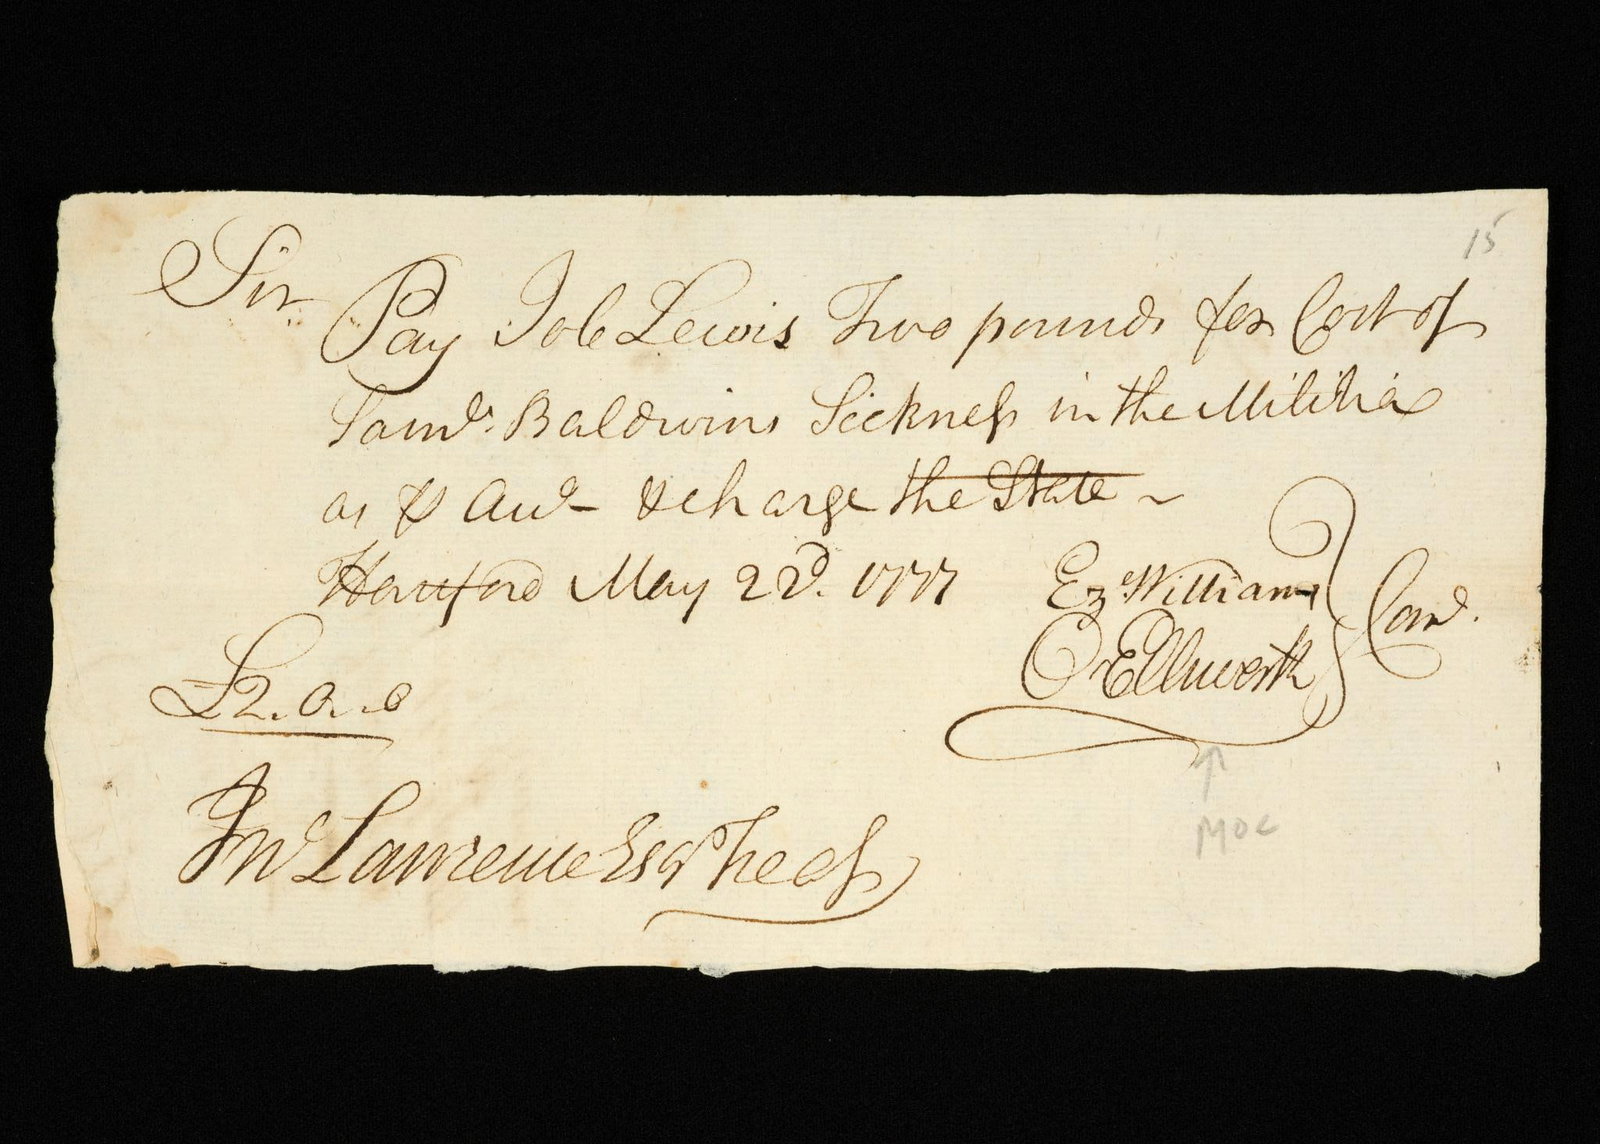 15
Sir
Pay Job Lewis Two pounds for Cost of
Saml. Baldwins Sickness in the Militia
as ⅌ Acct & charge the State ~
Hartford May 22d. 1777
Ez Williams
O Ellsworth
Comd.
£2..0..0
Jno Lawrence Esqr Treasr
MOC